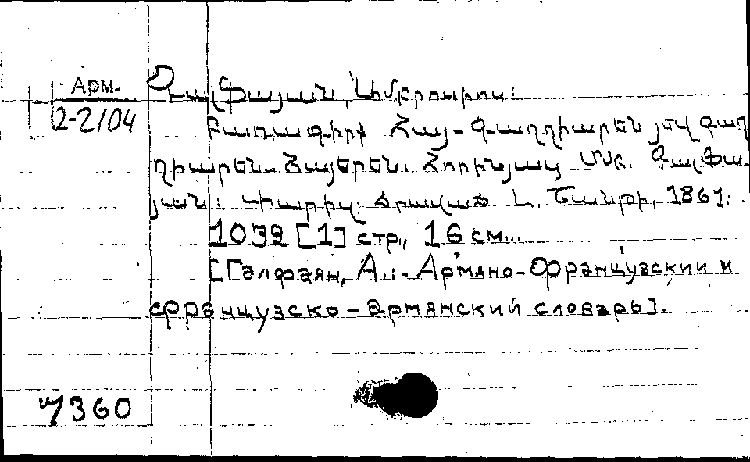 Арм.
2-2/04
Գալֆայան, Ամբրոսիոս:
Բառագիրք Հայ-Գաղղիարեն յև գաղ
ղիարեն-Հայերեն. Հորինյաց Ամբ. Գալֆա-
յան: Փարիզ: Տպագր. Է. Թանթի, 1861:
1032 [1] стр., 16 см..
[Галфаян, А.:-Армяно-Французский и
французско-армянский словарь].
7360